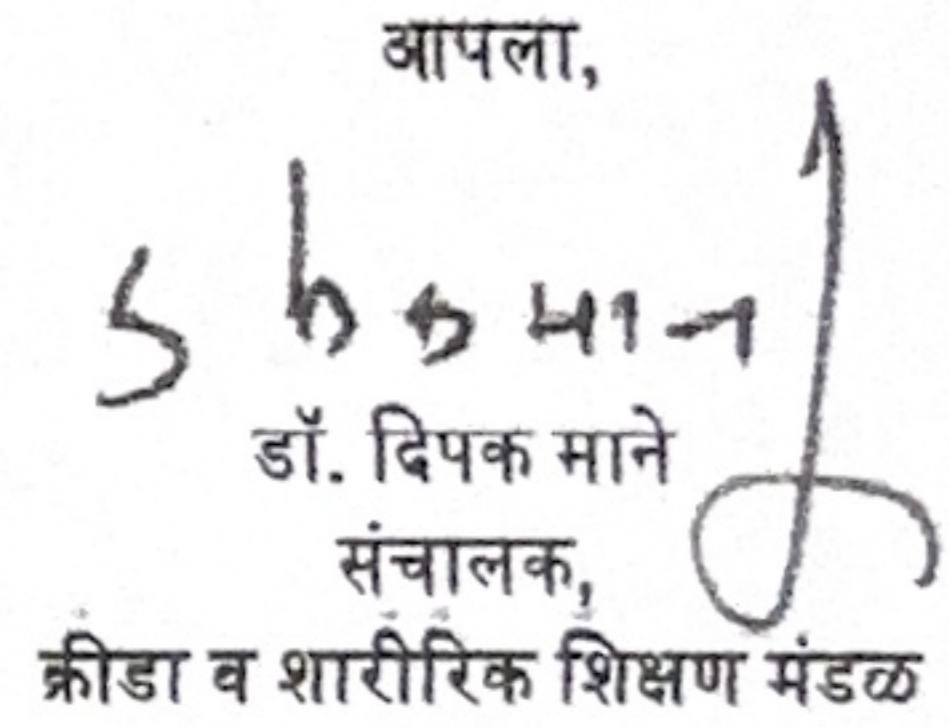 आपला,
डॉ. दिपक माने
संचालक,
क्रीडा व शारीरिक शिक्षण मंडळ